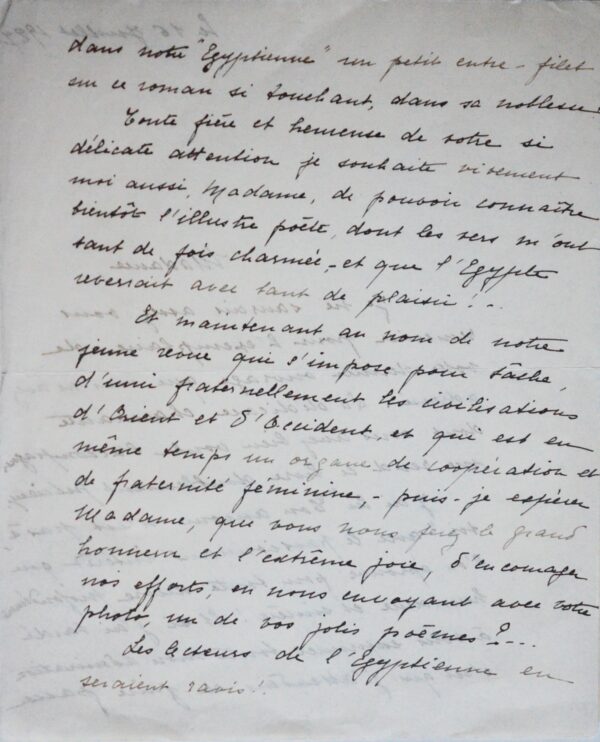 dans notre "Egyptienne" un petit entre-filet
sur ce roman si touchant, dans sa noblesse!
Toute fière et heureuse de votre si
délicate attention je souhaite vivement
moi aussi, Madame, de pouvoir connaître
bientôt l'illustre poète, dont les vers m'ont
tant de fois charmée, et que l'Egypte
reverrait avec tant de plaisir!..
Et maintenant au nom de notre
jeune revue qui s'impose pour tâche,
d'unir fraternellement les civilisations
d'Orient et d'Occident, et qui est en
même temps un organe de coopération et
de fraternité féminine, - puis-je espérer
Madame, que vous nous ferez le grand
honneur et l'extrême joie, d'encourager
nos efforts, en nous envoyant avec votre
photo, un de vos jolis poèmes?...
Les lecteurs de l'Egyptienne en
seraient ravis!